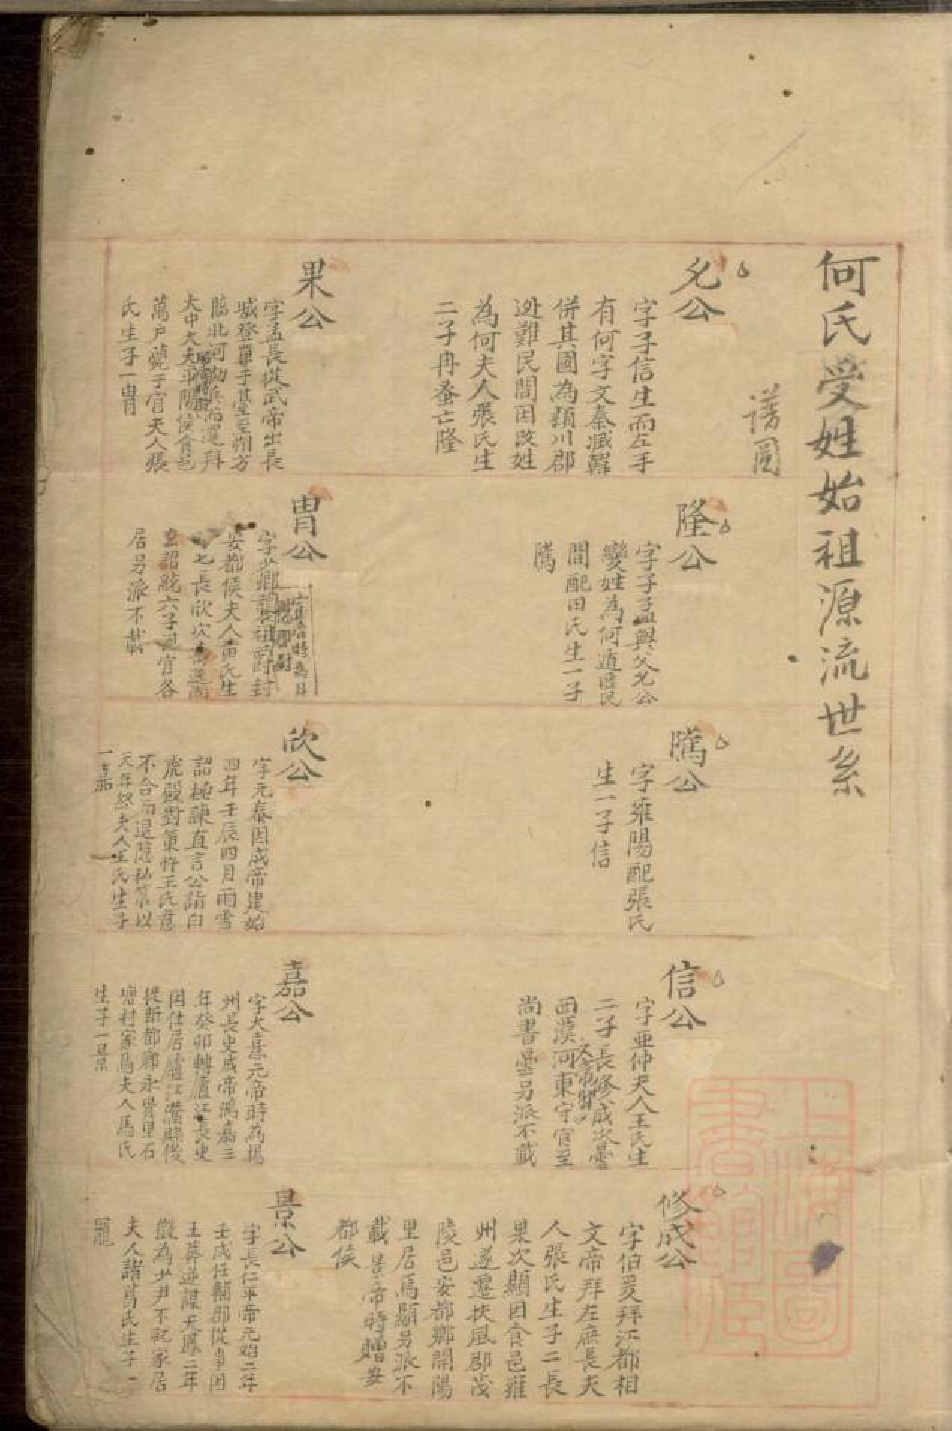 何氏受姓始祖源流世系
譜圖
允公
字子信生而左手
有何字文秦滅韓
併其國為潁川郡
迯難民間因改姓
為何夫人張氏生
二子冉蚤亡隆
隆公
字子孟與父允公
變姓為何遁匿民
間配田氏生一子
騰
騰公
字雍陽配張氏
生一子信
信公
字亜仲夫人王氏生
二子長修成次曇
西漢河東守官至
尚書曇另派不載
修成公
字伯爰拜江都相
文帝拜左庶長夫
人張氏生子二長
果次顯因食邑雍
州遂遷扶風郡茂
陵邑安都鄉開陽
里居焉顯另派不
載景帝時贈安
都侯
果公
字孟長從武帝出長
城登單于其臺至朔方
臨北河勒兵而還拜
大中大夫平陽侯食邑
萬戶薨于官夫人張
氏生子一冑
冑公
字少卿襲祖爵封
安都侯夫人黃氏生
七長欣次
詔統六子官各
居另派不載
欣公
字元泰因成帝建始
四年壬辰四月雨雪
詔極諫直言公詣白
虎殿對策忤王氏意
不合而退隱私第以
天年終夫人王氏生子
一嘉
嘉公
字大意元帝時為揚
州長史成帝鴻嘉三
年癸卯轉廬江長史
因仕居廬江灊縣後
從斯都鄉永貴里石
塘村家焉夫人馬氏
生子一景
景公
字長仁平帝元始二年
壬戌任輔郡從事因
王莽遂謀天鳳二年
徵為少尹不就家居
夫人諸葛氏生子一
寵